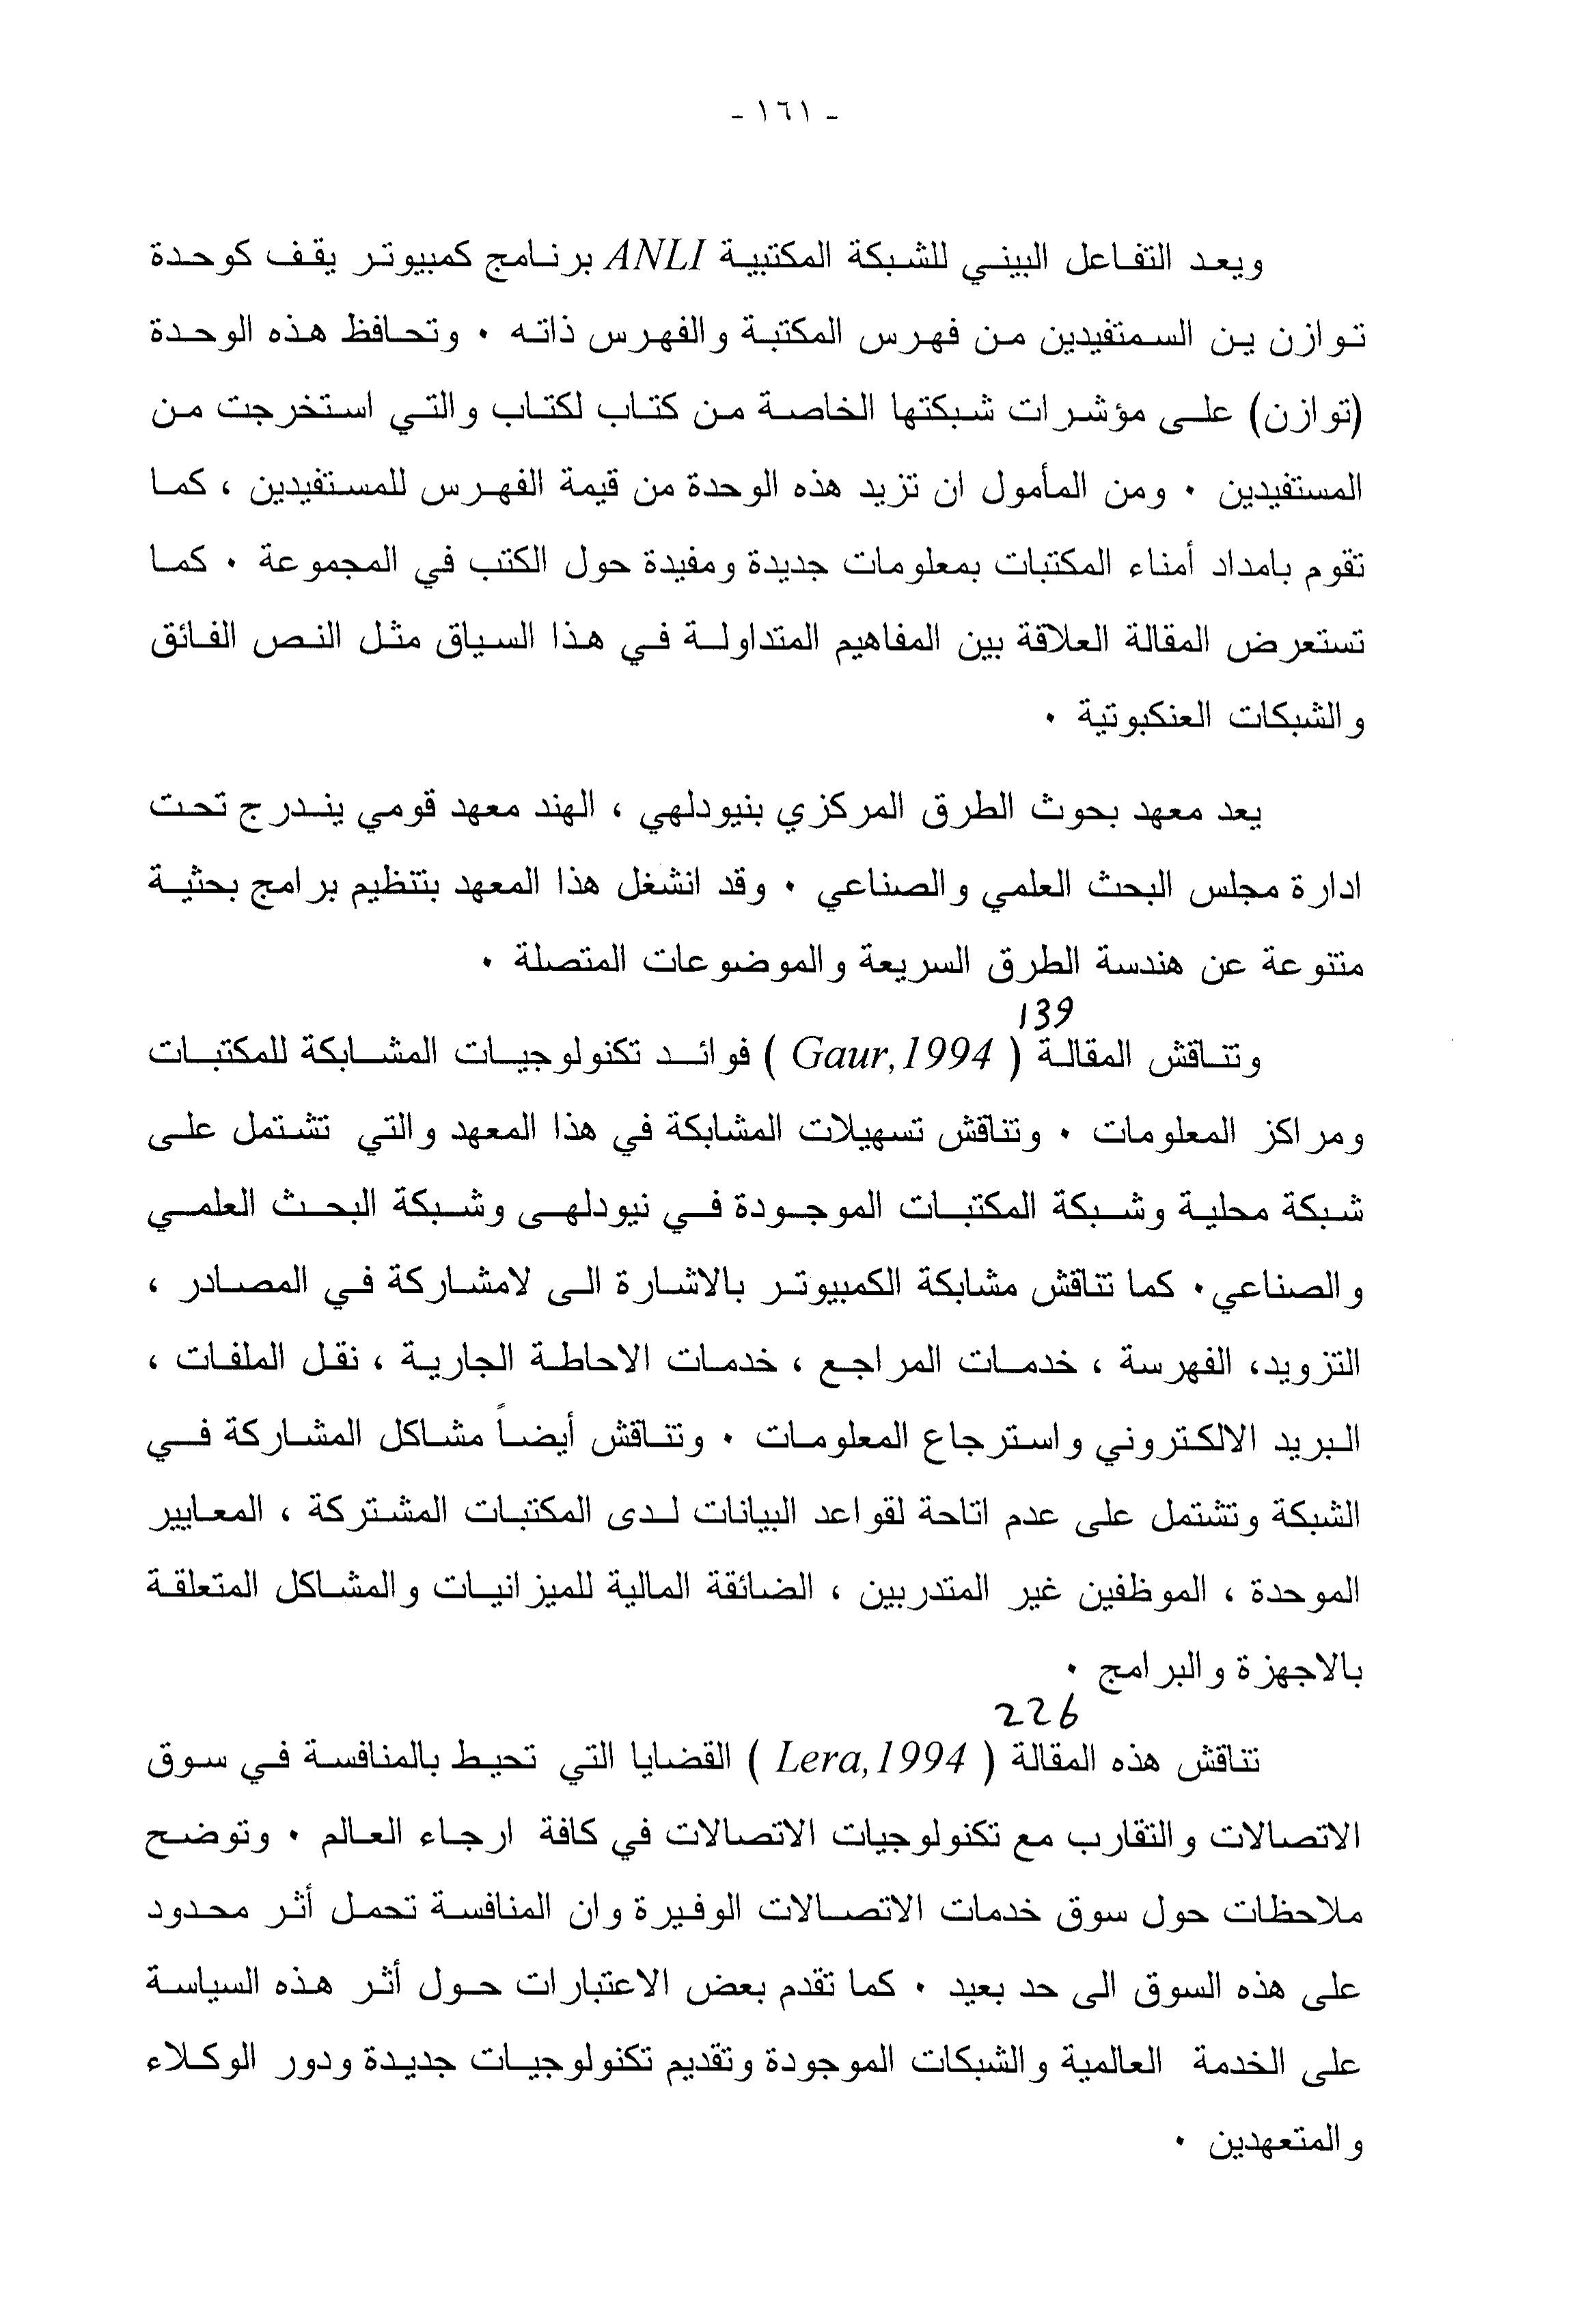 - ١٦١ -
ويعد التفاعل البيني للشبكة المكتبية ANLI برنامج كمبيوتر يقف كوحدة
توازن ين السمتفيدين من فهرس المكتبة والفهرس ذاته . وتحافظ هذه الوحدة
(توازن) على مؤشرات شبكتها الخاصة من كتاب لكتاب والتي استخرجت من
المستفيدين . ومن المأمول ان تزيد هذه الوحدة من قيمة الفهرس للمستفيدين ، كما
تقوم بامداد أمناء المكتبات بمعلومات جديدة ومفيدة حول الكتب في المجموعة . كما
تستعرض المقالة العلاقة بين المفاهيم المتداولة في هذا السياق مثل النص الفائق
والشبكات العنكبوتية .
يعد معهد بحوث الطرق المركزي بنيودلهي ، الهند معهد قومي يندرج تحت
ادارة مجلس البحث العلمي والصناعي . وقد انشغل هذا المعهد بتنظيم برامج بحثية
متنوعة عن هندسة الطرق السريعة والموضوعات المتصلة .
139
وتناقش المقالة ( Gaur,1994 ) فوائد تكنولوجيات المشابكة للمكتبات
ومراكز المعلومات . وتناقش تسهيلات المشابكة في هذا المعهد والتي تشتمل على
شبكة محلية وشبكة المكتبات الموجودة في نيودلهى وشبكة البحث العلمي
والصناعي. كما تناقش مشابكة الكمبيوتر بالاشارة الى لامشاركة في المصادر ،
التزويد، الفهرسة ، خدمات المراجع ، خدمات الاحاطة الجارية ، نقل الملفات ،
البريد الالكتروني واسترجاع المعلومات . وتناقش أيضاً مشاكل المشاركة في
الشبكة وتشتمل على عدم اتاحة لقواعد البيانات لدى المكتبات المشتركة ، المعايير
الموحدة ، الموظفين غير المتدربين ، الضائقة المالية للميزانيات والمشاكل المتعلقة
بالاجهزة والبرامج .
226
تناقش هذه المقالة ( Lera,1994 ) القضايا التي تحيط بالمنافسة في سوق
الاتصالات والتقارب مع تكنولوجيات الاتصالات في كافة ارجاء العالم . وتوضح
ملاحظات حول سوق خدمات الاتصالات الوفيرة وان المنافسة تحمل أثر محدود
على هذه السوق الى حد بعيد . كما تقدم بعض الاعتبارات حول أثر هذه السياسة
على الخدمة العالمية والشبكات الموجودة وتقديم تكنولوجيات جديدة ودور الوكلاء
والمتعهدين .